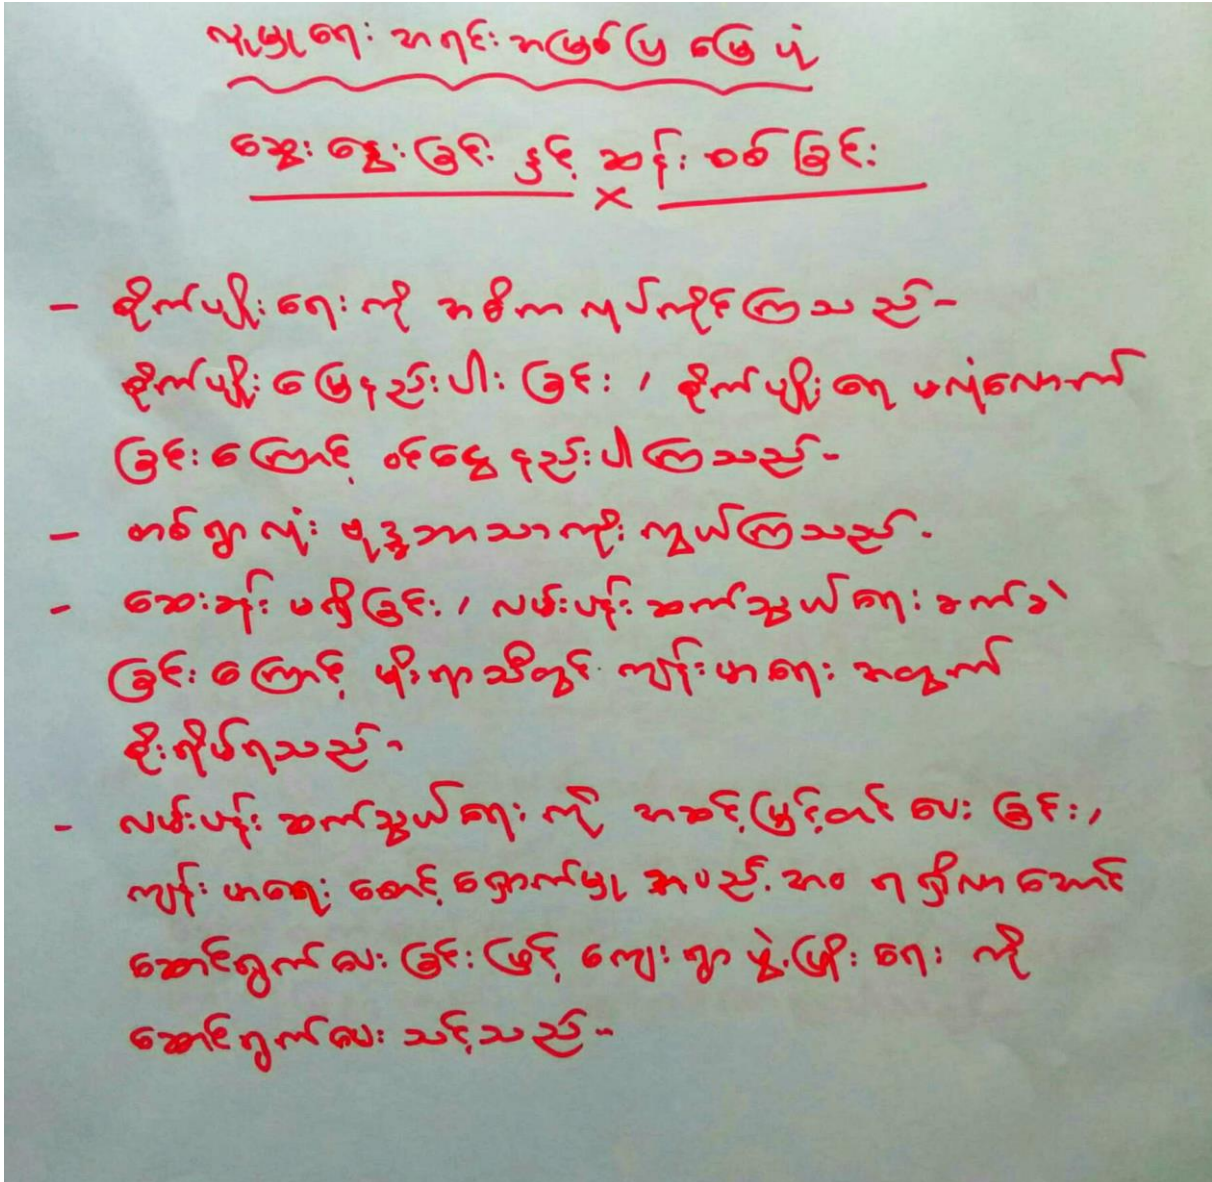 လူမှုရေး အရင်းအမြစ်ပြ မြေပုံ
ဆွေးနွေးခြင်း နှင့် ဆန်းစစ်ခြင်း
x
- စိုက်ပျိုးရေးကို အဓိက လုပ်ကိုင်ကြသည်-
စိုက်ပျိုးမြေနည်းပါးခြင်း၊ စိုက်ပျိုးရေ မလုံလောက်
ခြင်းကြောင့် ဝင်ငွေနည်းပါကြသည်-
- တစ်ရွာလုံး ဗုဒ္ဓဘာသာကိုးကွယ်ကြသည်-
- ဆေးခန်း မရှိခြင်း၊ လမ်းပန်းဆက်သွယ်ရေး ခက်ခဲ
ခြင်းကြောင့် မိုးရာသီတွင် ကျန်းမာရေး အတွက်
စိုးရိမ်ရသည်-
- လမ်းပန်းဆက်သွယ်ရေးကို အဆင့်မြှင့်တင်ပေးခြင်း၊
ကျန်းမာရေး စောင့်ရှောက်မှု အပြည့်အဝ ရရှိလာအောင်
ဆောင်ရွက်ပေးခြင်းဖြင့် ကျေးရွာ ဖွံ့ဖြိုးရေးကို
ဆောင်ရွက်ပေးသင့်သည်-